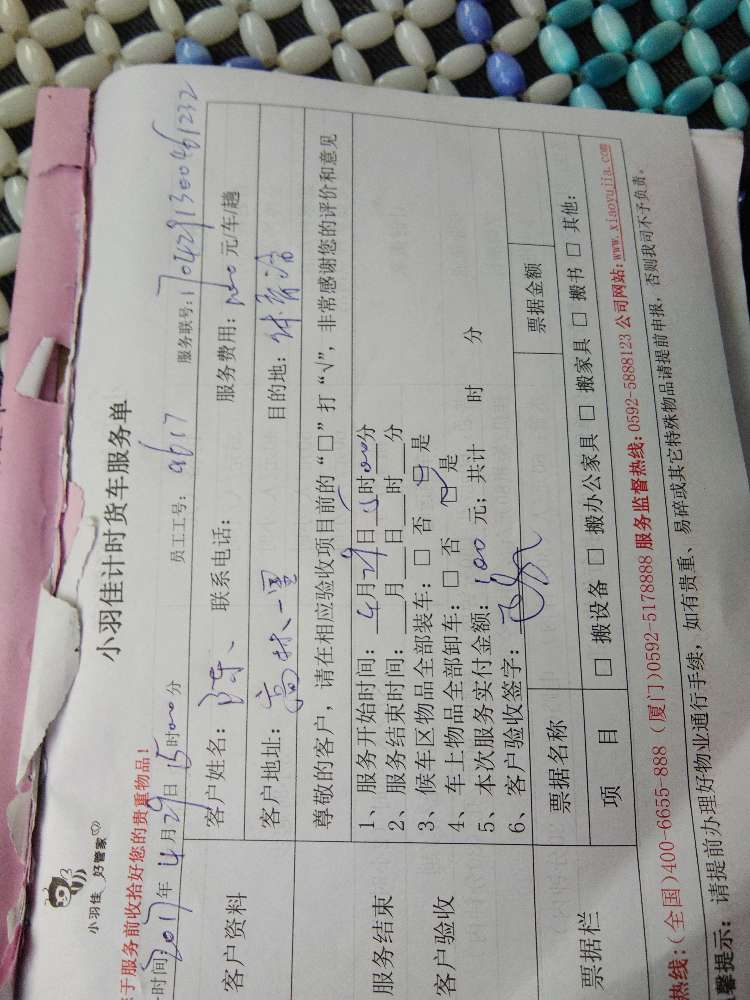 小羽佳 好管家
小羽佳计时货车服务单
于服务前收拾好您的贵重物品！
时间: 2017年4月29日15时00分 员工工号: 9617 服务联号: 1704291300461232
客户资料
客户姓名: 陈、 联系电话: 服务费用: 元/车/趟
客户地址: 高林一里 目的地: 体育路
尊敬的客户，请在相应验收项目前的“□”打“√”，非常感谢您的评价和意见
服务结束
客户验收
1、服务开始时间: 4月29日15时00分
2、服务结束时间: 月 日 时 分
3、候车区物品全部装车: □ 否 □ 是
4、车上物品全部卸车: □ 否 □ 是
5、本次服务实付金额: 100 元; 共计 时 分
6、客户验收签字:
票据栏
票据名称 票据金额
项 目 □ 搬设备 □ 搬办公家具 □ 搬家具 □ 搬书 □ 其他:
热线: (全国)400-6655-888 (厦门)0592-5178888 服务监督热线: 0592-5888123 公司网站: www.xiaoyujia.com
馨提示: 请提前办理好物业通行手续，如有贵重、易碎或其它特殊物品请提前申报，否则我司不予负责。